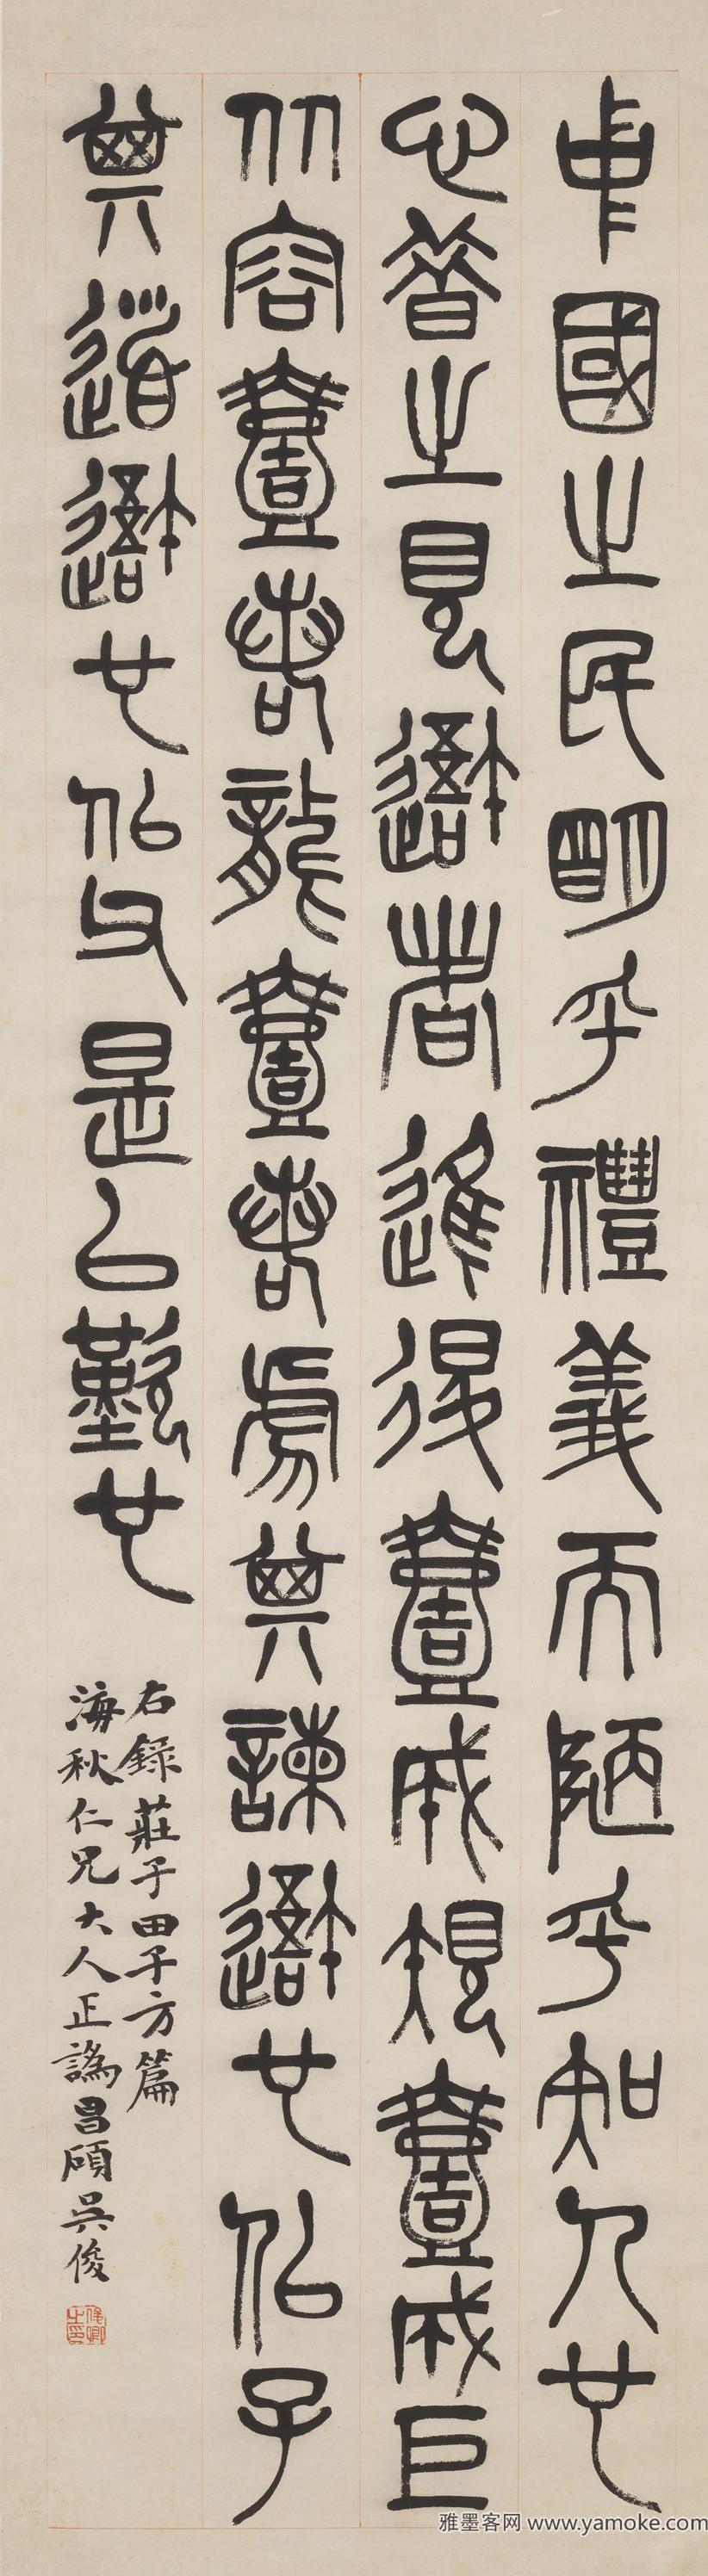 中國之民明乎禮義而陋乎知人也
心昔之見𨖴者進退壹成規壹成巨
从容壹若龍壹若虎其諫𨖴也佀子
其道𨖴也佀父是以歎也
右錄莊子田子方篇
海秋仁兄大人正譌昌碩吳俊
俊卿之印
雅墨客网 www.yamoke.com